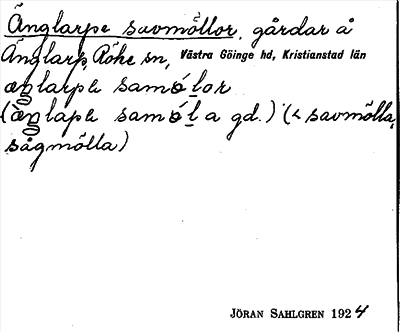 Änglarpe savmöllor, gårdar å
Änglarp, Röke sn, Västra Göinge hd, Kristianstad län
æŋlarpə samǿlor
(æŋlapə samǿla gd.) (< savmölla,
sågmölla)
JÖRAN SAHLGREN 1924